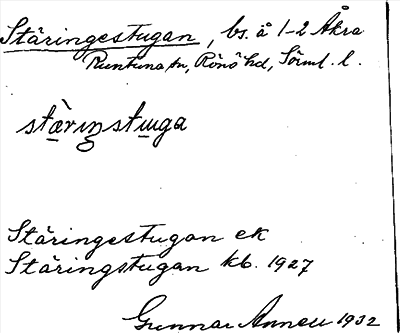 Stäringestugan, bs. å 1-2 Åkra
Runtuna sn, Rönö hd, Sörml. l.
stæ̀riŋstuga
Stäringestugan ek
Stäringstugan kb. 1927
Gunnar 1932